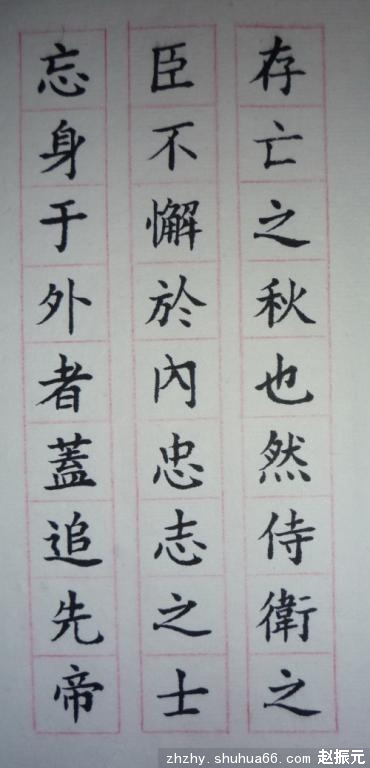 存亡之秋也然侍衛之
臣不懈於內忠志之士
忘身于外者蓋追先帝
zhzhy.shuhua66.com 赵振元